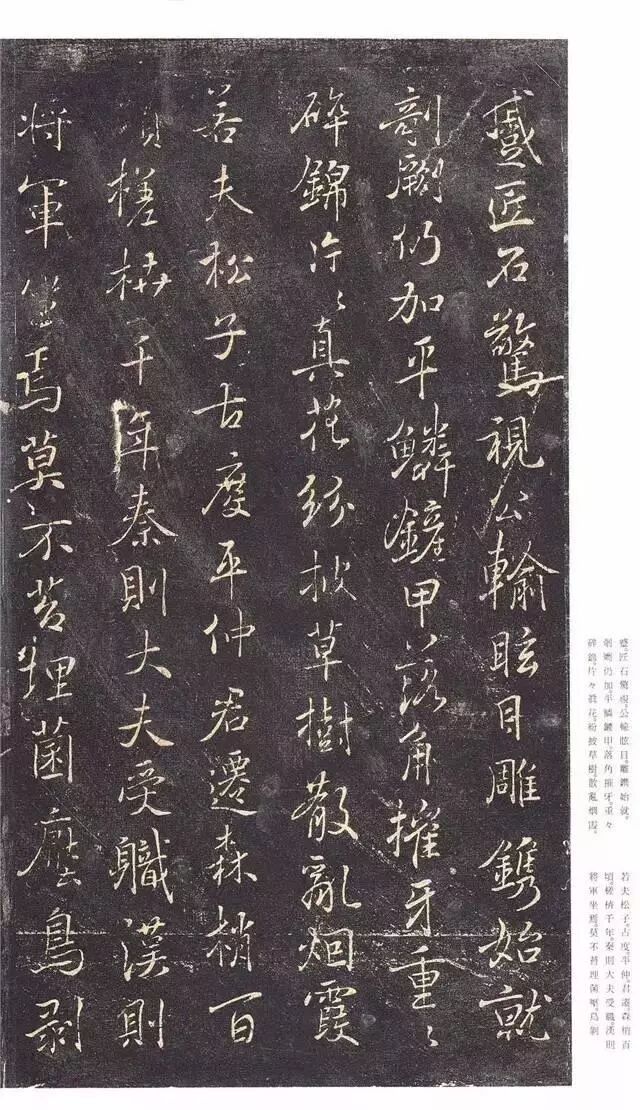 蹙匠石驚視公輸眩目雕鐫始就
剞劂仍加平鱗鏟甲落角摧牙重〻
碎錦片〻真花紛披草樹散亂烟霞
若夫松子古度平仲君遷森梢百
頃槎枿千年秦則大夫受職漢則
將軍坐焉莫不苔埋菌壓鳥剥
蹙匠石驚視公輸眩目雕鐫始就
剞劂仍加平鱗鏟甲落角摧牙重々
碎錦片々眞花紛披草樹散亂烟霞
若夫松子古度平仲君遷森梢百
頃槎枿千年秦則大夫受職漢則
將軍坐焉莫不苔埋菌壓鳥剝